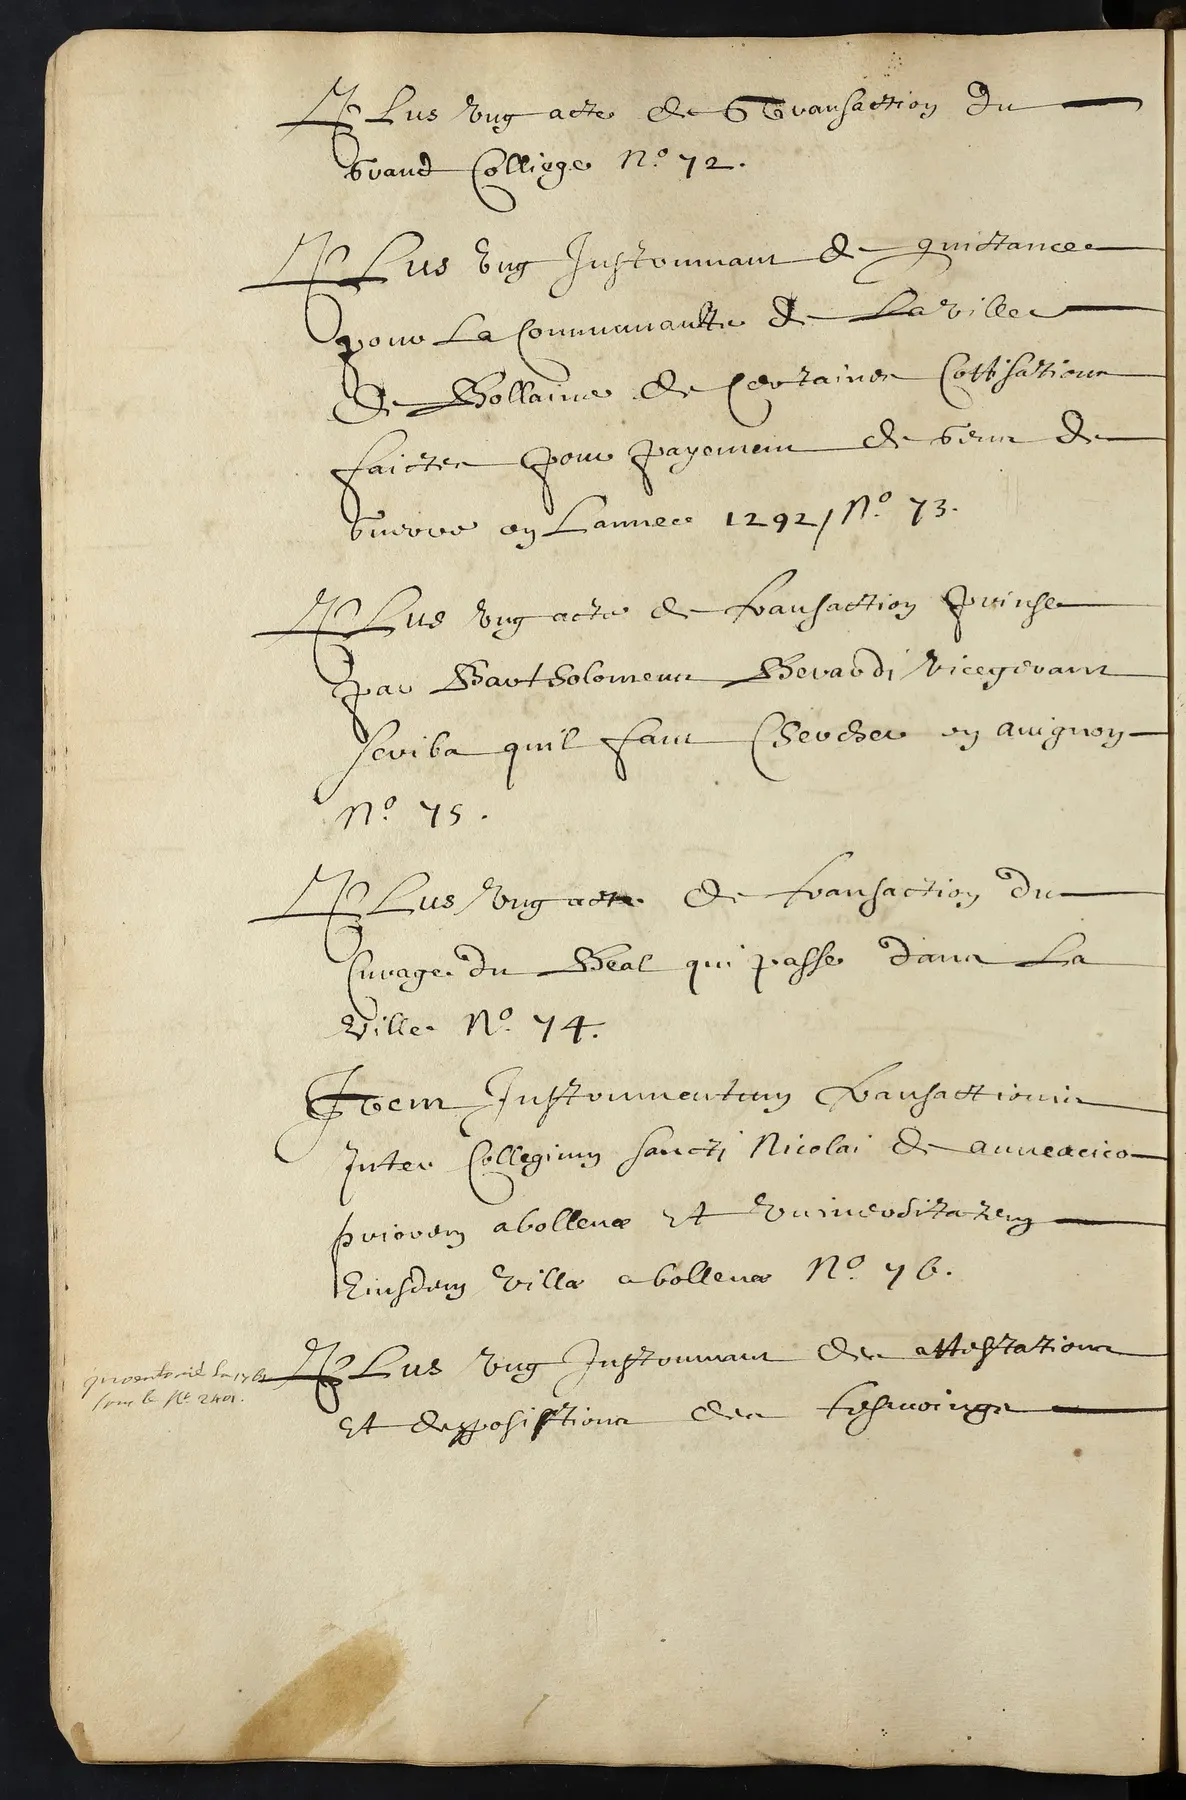 PLus Vng acte de Transaction du
Grand Colliege N.º 72.
PLus Vng Instrumant de quictance
pour La Communaulte de La Ville
de Bollaine de Certaines Cottisations
faictes pour payement de gens de
Guerre en Lannee 1292 / N.º 73.
PLus Vng acte de transaction prinse
par Bartholomeus Berardi Vicegerant
scriba quil faut Chercher en auignon
Nº 75.
PLus Vng acte de transaction du
Curage du Beal qui passe dans La
Ville N.º 74.
Item Instrumentum transactionis
Inter Collegium sancti Nicolai de anneacico
priorem abollenæ Et Vniuersitatem
Eiusdem Villæ abollenæ N.º 76.
inventorié Lan 1762
sous le Nº 2401.
PLus Vng Instrumant des attestations
Et deppositions des tesmoings